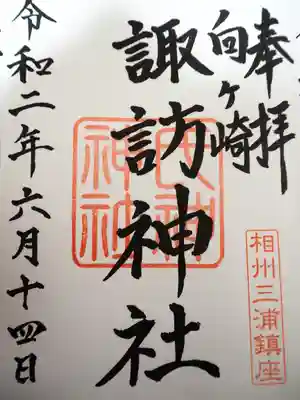 奉拝
向ヶ崎
諏訪神社
令和二年六月十四日
相州三浦鎮座